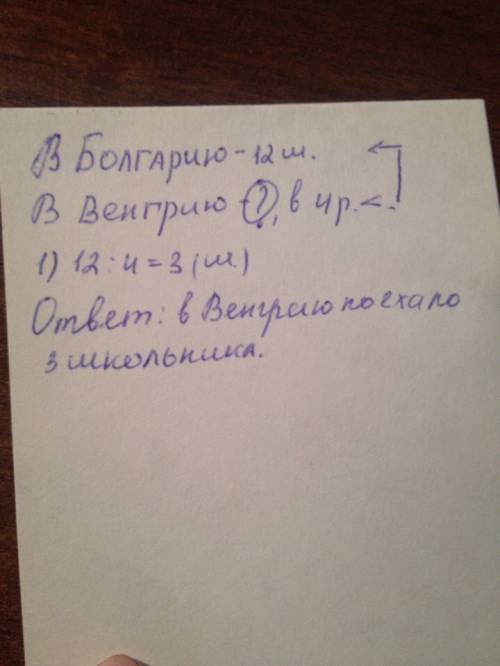 В Болгарию - 12 ш.
В Венгрию - ?, в 4 р. <
1) 12 : 4 = 3 (ш.)
Ответ: в Венгрию поехало
3 школьника.